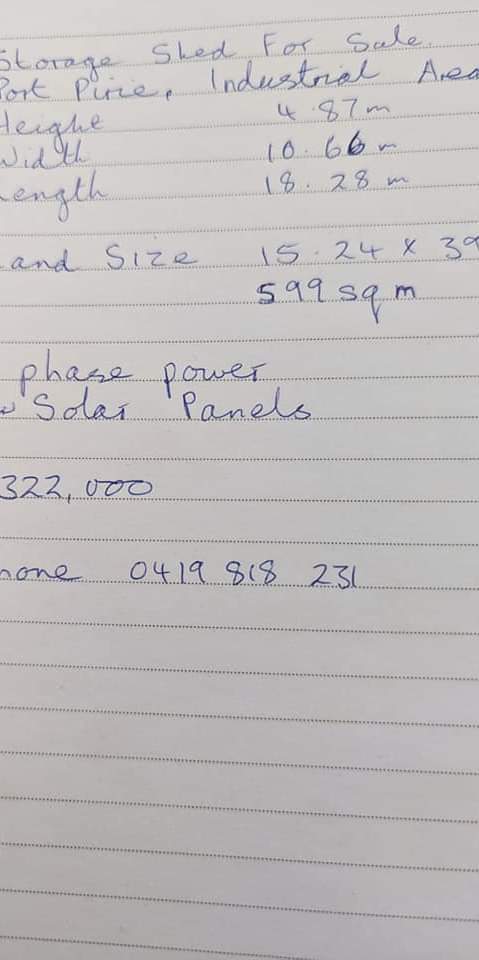 Storage Shed For Sale.
Port Pirie, Industrial Area
Heighe 4.87m
Width 10.66m
Length 18.28m
and Size 15.24 x 39
599 sq m
phase power
Solar Panels
322,000
hone 0419 818 231